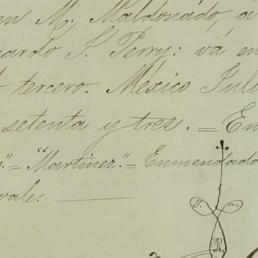 en M. Maldonado, á
ardo S. Perry: vá en
tercero. Mexico Juli
setenta y tres. = En
" = "Martinez" = Enmendado
vale.